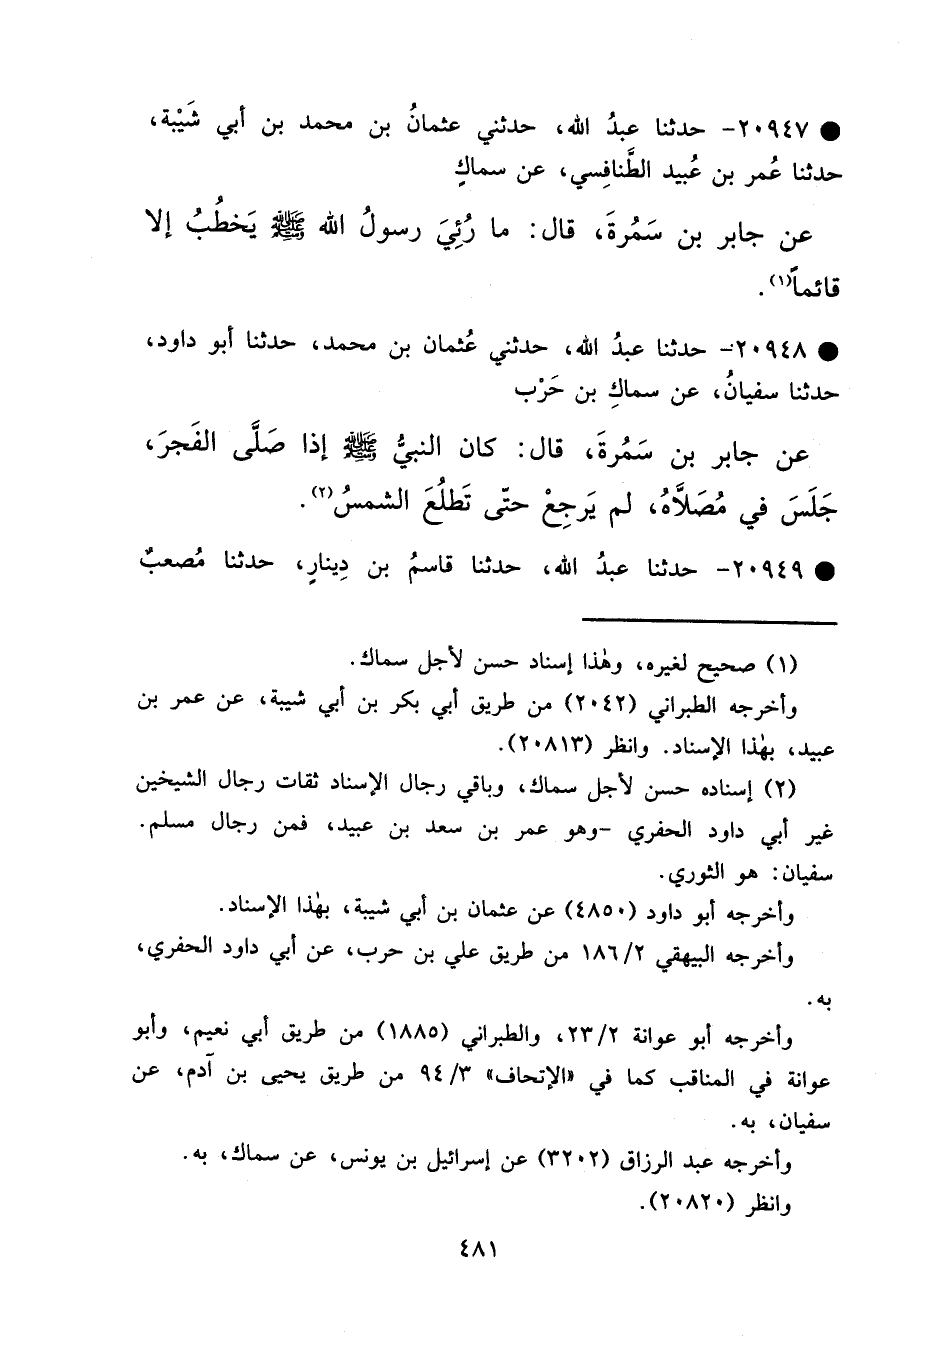 ● ٢٠٩٤٧- حدثنا عبدُ الله، حدثني عثمانُ بن محمد بن أبي شَيْبة،
حدثنا عُمر بن عُبيد الطَّنافِسي، عن سماكٍ
عن جابر بن سَمُرةَ، قال: ما رُئِيَ رسولُ الله ﷺ يَخطُبُ إلا
قائماً(١).
● ٢٠٩٤٨- حدثنا عبدُ الله، حدثني عُثمان بن محمد، حدثنا أبو داود،
حدثنا سفيانُ، عن سماكِ بن حَرْب
عن جابر بن سَمُرةَ، قال: كان النبيُّ ﷺ إذا صَلَّى الفَجرَ،
جَلَسَ في مُصَلاَّهُ، لم يَرجِعْ حتّى تَطلُعَ الشمسُ(٢).
● ٢٠٩٤٩- حدثنا عبدُ الله، حدثنا قاسمُ بن دِينارٍ، حدثنا مُصعبٌ
(١) صحيح لغيره، وهٰذا إسناد حسن لأجل سماك.
وأخرجه الطبراني (٢٠٤٢) من طريق أبي بكر بن أبي شيبة، عن عمر بن
عبيد، بهٰذا الإسناد. وانظر (٢٠٨١٣).
(٢) إسناده حسن لأجل سماك، وباقي رجال الإسناد ثقات رجال الشيخين
غير أبي داود الحفري -وهو عمر بن سعد بن عبيد، فمن رجال مسلم.
سفيان: هو الثوري.
وأخرجه أبو داود (٤٨٥٠) عن عثمان بن أبي شيبة، بهٰذا الإسناد.
وأخرجه البيهقي ١٨٦/٢ من طريق علي بن حرب، عن أبي داود الحفري،
به.
وأخرجه أبو عوانة ٢٣/٢، والطبراني (١٨٨٥) من طريق أبي نعيم، وأبو
عوانة في المناقب كما في «الإتحاف» ٩٤/٣ من طريق يحيى بن آدم، عن
سفيان، به.
وأخرجه عبد الرزاق (٣٢٠٢) عن إسرائيل بن يونس، عن سماك، به.
وانظر (٢٠٨٢٠).
٤٨١